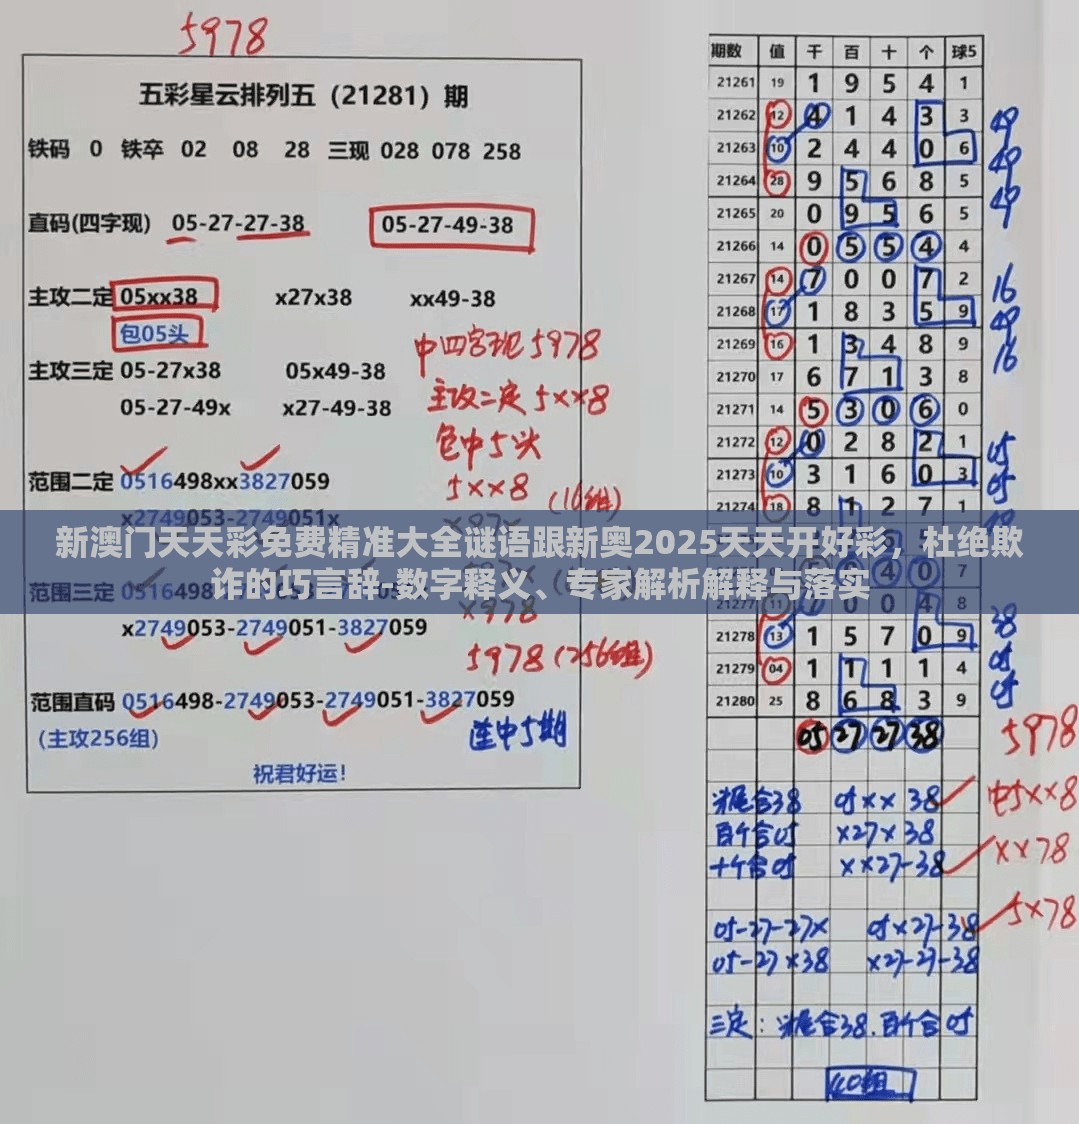 5978
五彩星云排列五（21281）期
铁码 0 铁卒 02 08 28 三现 028 078 258
直码(四字现) 05-27-27-38 05-27-49-38
主攻二定 05xx38 x27x38 xx49-38
包05头
主攻三定 05-27x38 05x49-38
05-27-49x x27-49-38
中四字现5978
主攻二定5xx8
包中5头
5xx8 (16组)
范围二定 0516498xx3827059
x2749053-2749051x
范围三定
x978
x2749053-2749051-3827059
5978 (256组)
范围直码 0516498-2749053-2749051-3827059
(主攻256组)
连中5期
祝君好运!
新澳门天天彩免费精准大全谜语跟新奥2025天天开好彩，杜绝欺
诈的巧言辞-数字释义、专家解析解释与落实
期数 值 千 百 十 个 球5
21261 19 1 9 5 4 1
21262 12 4 1 4 3 3 49
21263 10 2 4 4 0 6 49
21264 28 9 5 6 8 5 49
21265 20 0 9 5 6 5
21266 14 0 5 5 4 4
21267 14 7 0 0 7 2 16
21268 17 1 8 3 5 9 49
21269 16 1 3 4 8 9 16
21270 17 6 7 1 3 8
21271 14 5 3 0 6 0
21272 12 0 2 8 2 1 05
21273 10 3 1 6 0 3 05
21274 18 8 1 2 7 1
4 0 7
21277 11 0 0 4 8
21278 13 1 5 7 0 9 38
21279 04 1 1 1 1 4 05
21280 25 8 6 8 3 9 05
05 27 27 38 5978
05xx38 中5xx8
百个合05 x27x38
十个合05 xx27-38 xx78
05-27-27x 05x27-38 5x78
05-27x38 x27-27-38
三定: 合38.百个合05
40组